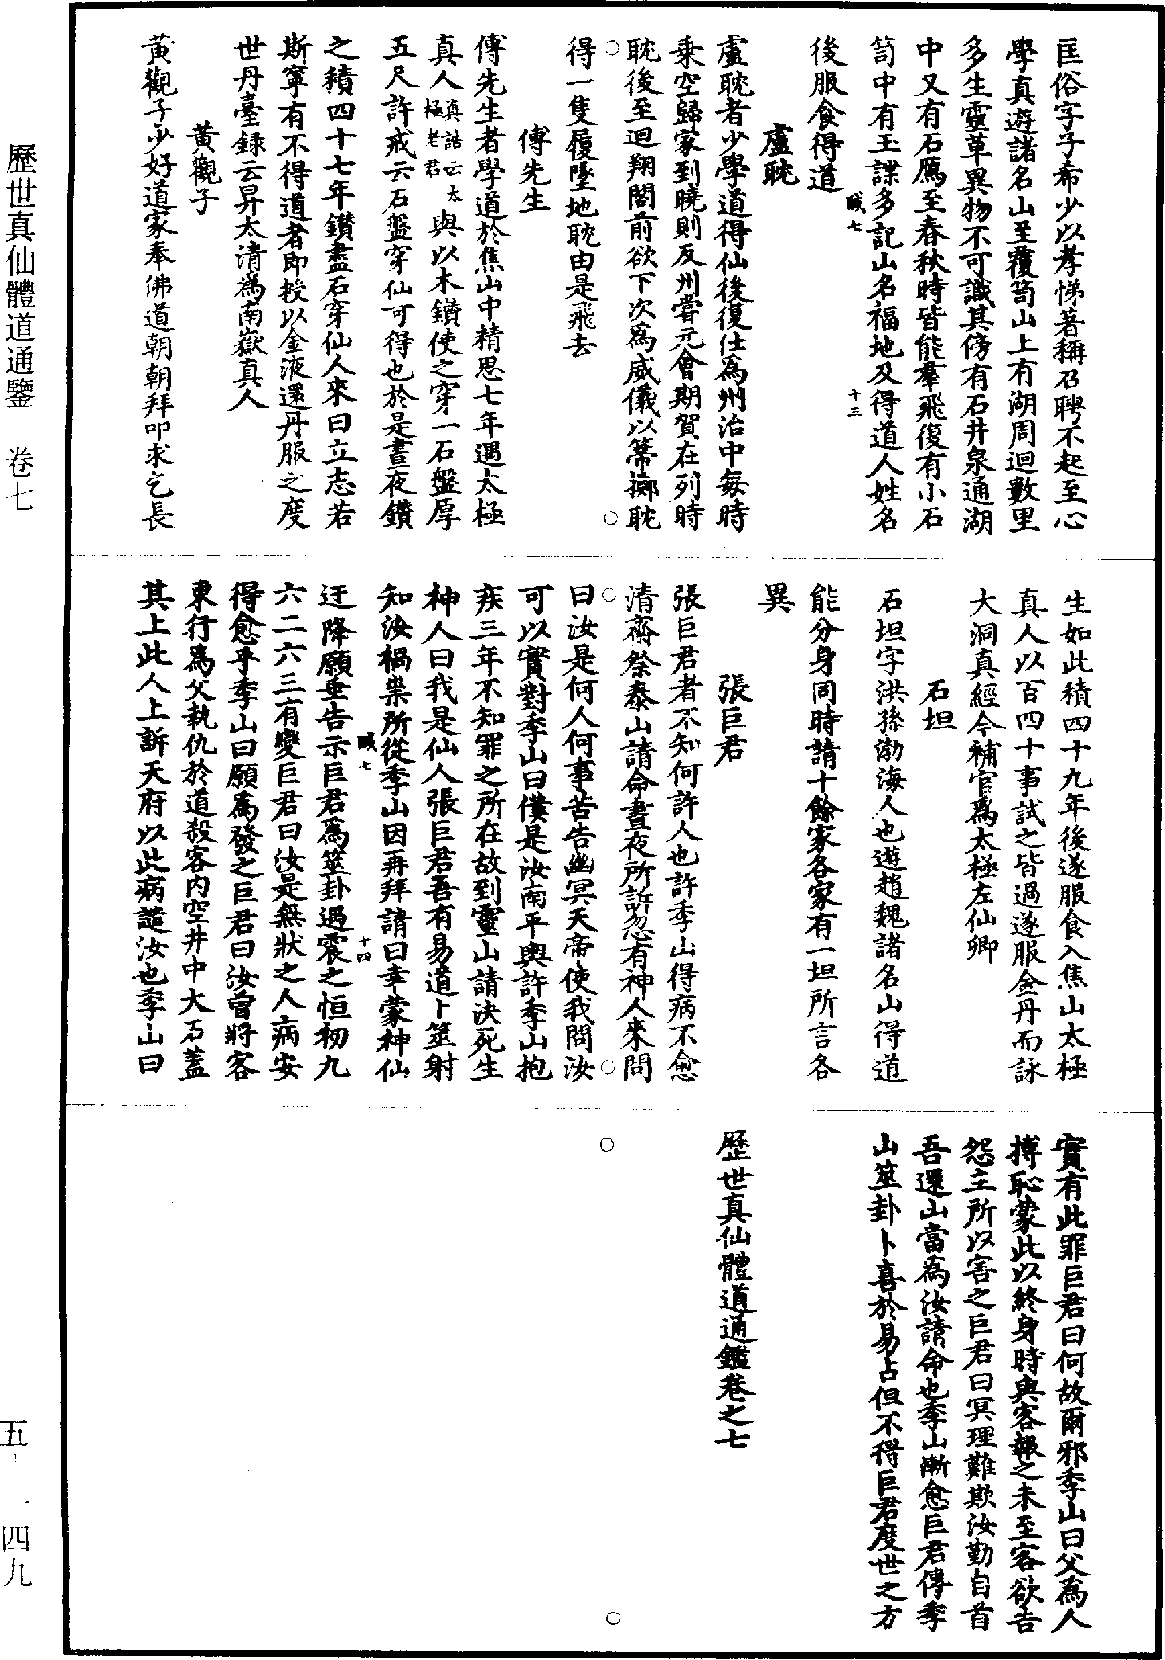 匡俗字子希少以孝悌著稱召聘不起至心
學真遊諸名山至覆笥山上有湖周迴數里
多生靈草異物不可識其傍有石井泉通湖
中又有石鴈至春秋時皆能羣飛復有小石
笥中有玉諜多記山名福地及得道人姓名
職七
十三
後服食得道
盧耽
盧耽者少學道得仙後復仕為州治中每時
乘空歸家到曉則反州嘗元會期賀在列時
耽後至迴翔閣前欲下次為威儀以箒擲耽
得一隻履墜地耽由是飛去
傅先生
傅先生者學道於焦山中精思七年遇太極
真人真誥云太極老君與以木鑽使之穿一石盤厚
五尺許戒云石盤穿仙可得也於是晝夜鑽
之積四十七年鑽盡石穿仙人來曰立志若
斯寧有不得道者即授以金液還丹服之度
世丹臺錄云昇太清為南嶽真人
黃觀子
黃觀子少好道家奉佛道朝朝拜叩求乞長
生如此積四十九年後遂服食入焦山太極
真人以百四十事試之皆過遂服金丹而詠
大洞真經今補官為太極左仙卿
石坦
石坦字洪孫渤海人也遊趙魏諸名山得道
能分身同時請十餘家各家有一坦所言各
異
張巨君
張巨君者不知何許人也許季山得病不愈
清齋祭泰山請命晝夜所訴忽有神人來問
曰汝是何人何事苦告幽冥天帝使我問汝
可以實對季山曰僕是汝南平輿許季山抱
疾三年不知罪之所在故到靈山請決死生
神人曰我是仙人張巨君吾有易道卜筮射
知汝禍祟所從季山因再拜請曰幸蒙神仙
迂降願垂告示巨君為筮卦遇震之恒初九
職七
十四
六二六三有變巨君曰汝是無狀之人病安
得愈乎季山曰願為發之巨君曰汝曾將客
東行為父執仇於道殺客內空井中大石蓋
其上此人上訴天府以此病謫汝也季山曰
實有此罪巨君曰何故爾邪季山曰父為人
搏恥蒙此以終身時與客報之未至客欲告
怨主所以害之巨君曰冥理難欺汝勤自首
吾還山當為汝請命也季山漸愈巨君傳季
山筮卦卜喜於易占但不得巨君度世之方
歷世真仙體道通鑑卷之七
歷世真仙體道通鑒　卷七
五
四九